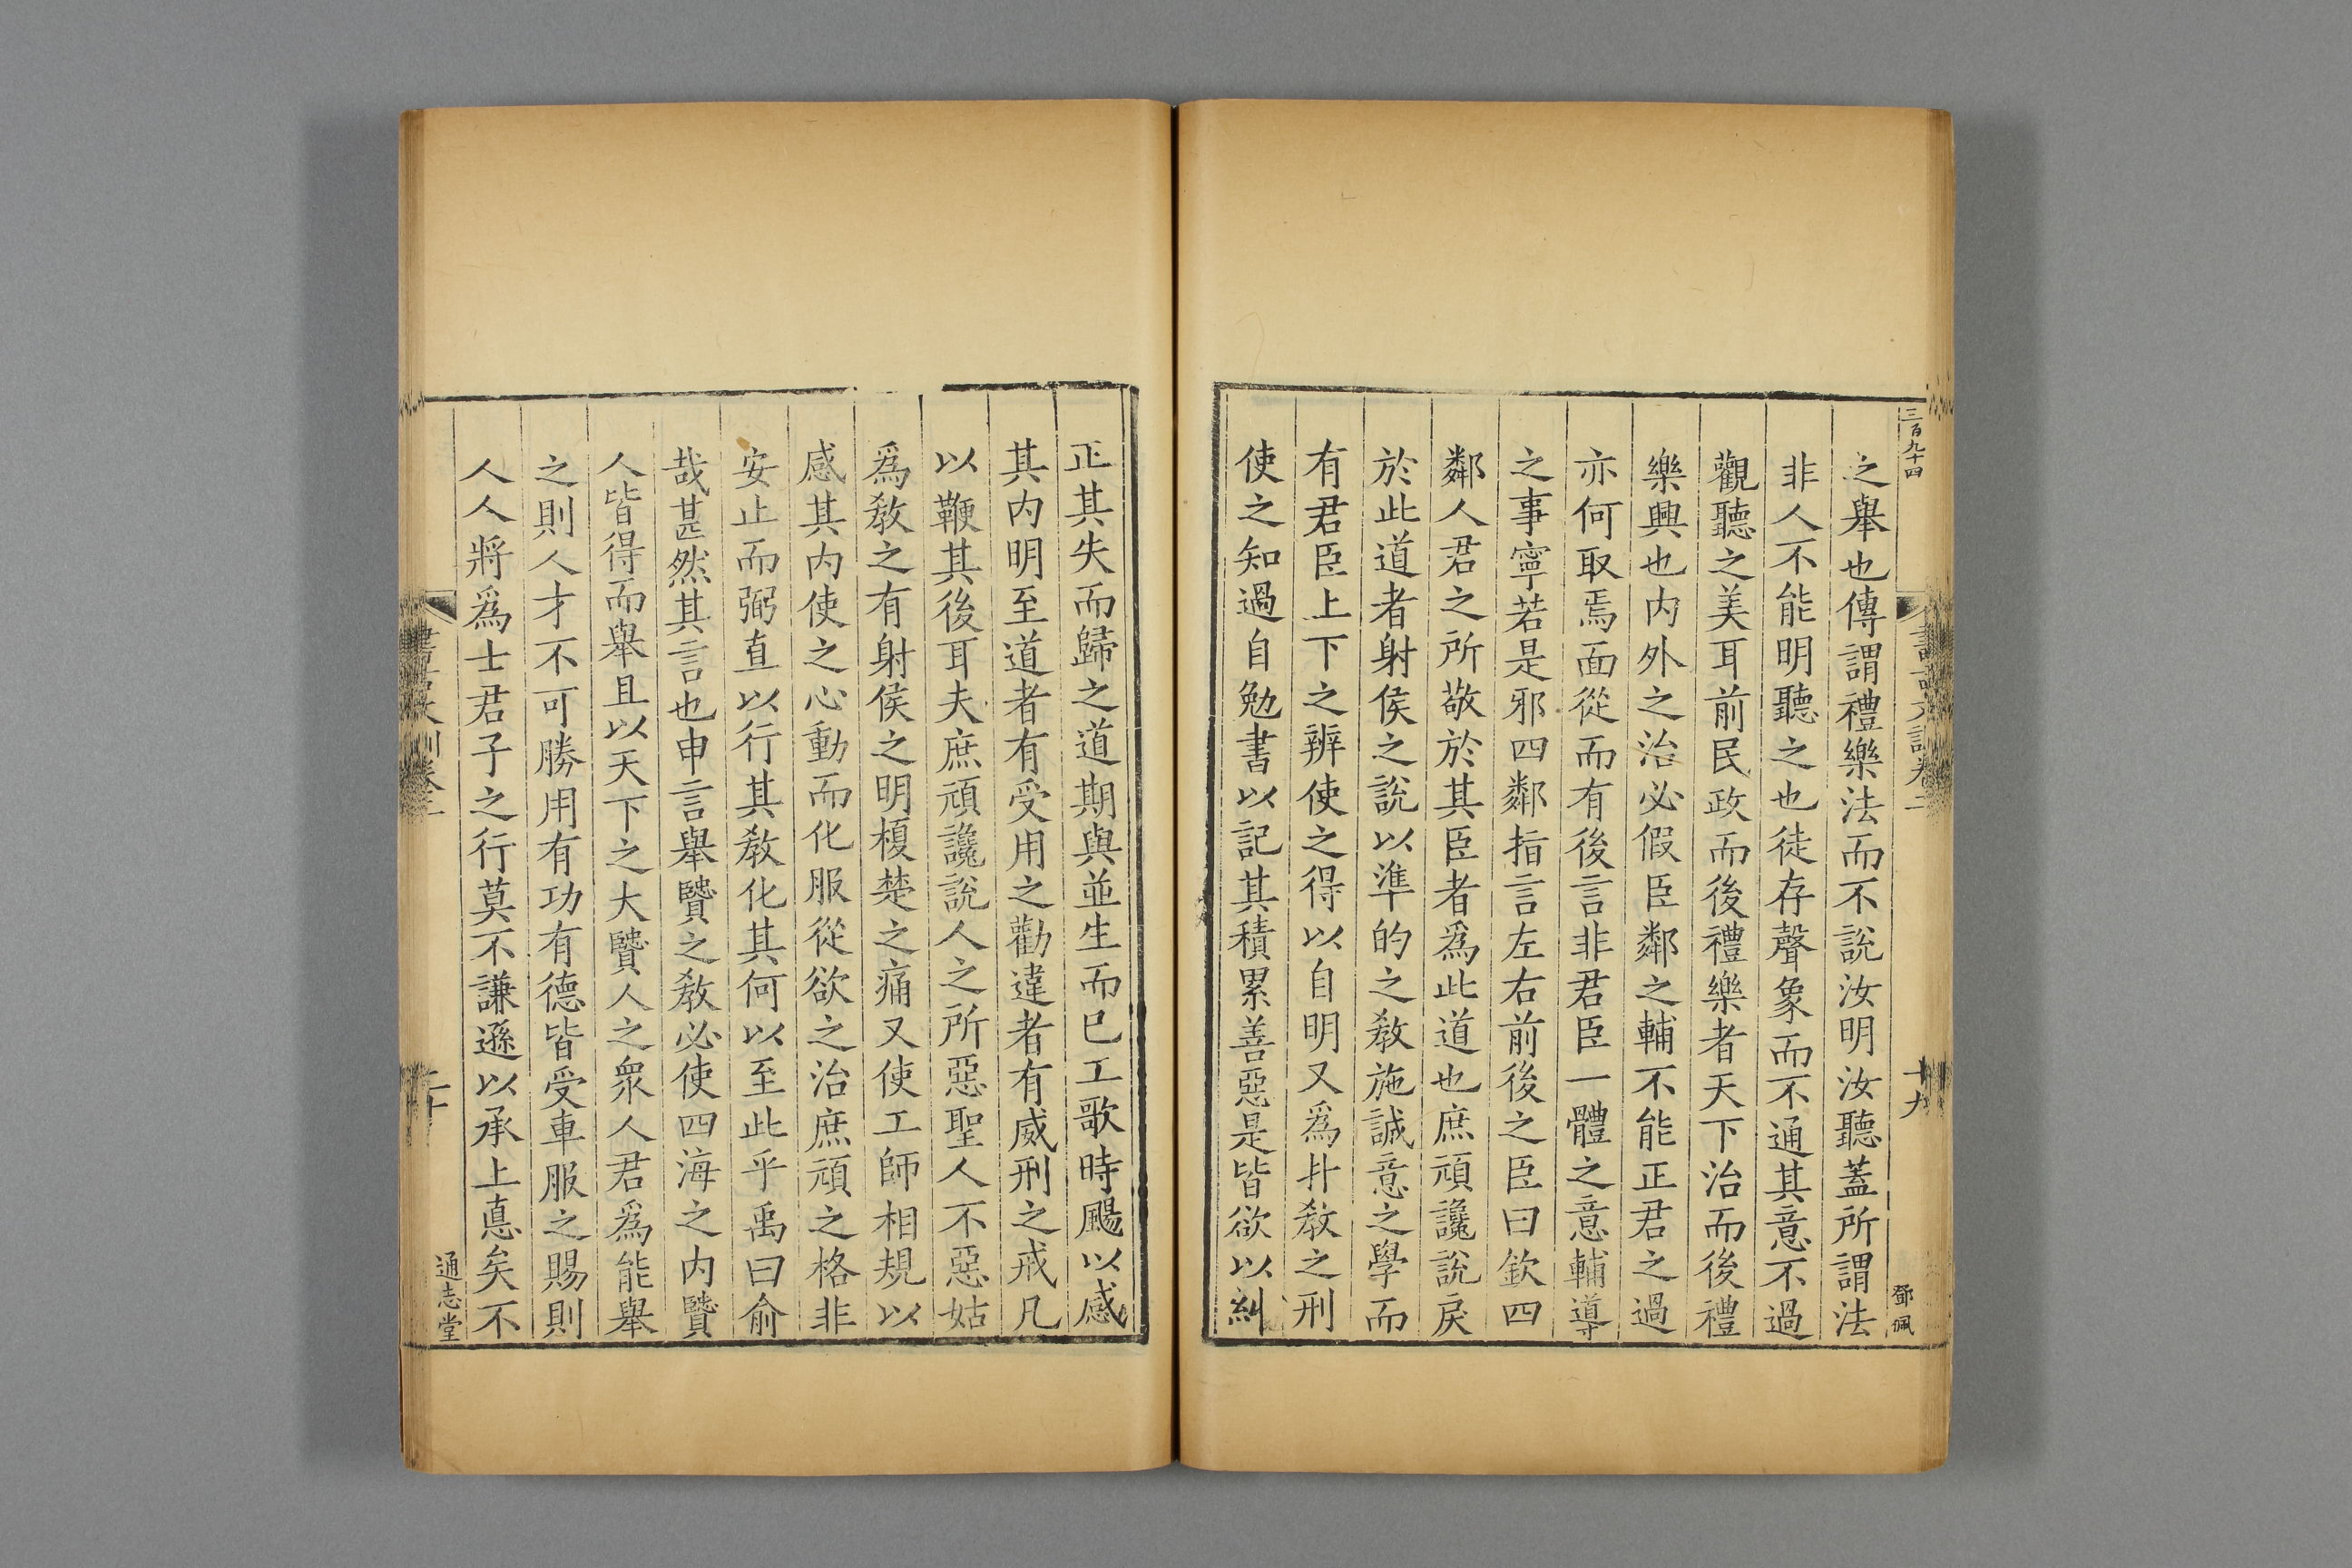 三百九十四
十九
鄧珮
之舉也傳謂禮樂法而不說汝明汝聽蓋所謂法
非人不能明聽之也徒存聲象而不通其意不過
觀聽之美耳前民政而後禮樂者天下治而後禮
樂興也内外之治必假臣鄰之輔不能正君之過
亦何取焉面從而有後言非君臣一體之意輔導
之事寧若是邪四鄰指言左右前後之臣曰欽四
鄰人君之所敬於其臣者爲此道也庶頑讒說戾
於此道者射侯之說以準的之敎施誠意之學而
有君臣上下之辨使之得以自明又爲廾敎之刑
使之知過自勉書以記其積累善惡是皆欲以糾
正其失而歸之道期與並生而已工歌時颺以感
其内明至道者有受用之勸違者有威刑之戒凡
以鞭其後耳夫庶頑讒說人之所惡聖人不惡姑
爲敎之有射侯之明榎楚之痛又使工師相規以
感其内使之心動而化服從欲之治庶頑之格非
安止而弼直以行其敎化其何以至此乎禹曰俞
哉甚然其言也申言舉賢之敎必使四海之内賢
人皆得而舉且以天下之大賢人之衆人君爲能舉
之則人才不可勝用有功有德皆受車服之賜則
人人將爲士君子之行莫不謙遜以承上悳矣不
二十
通志堂